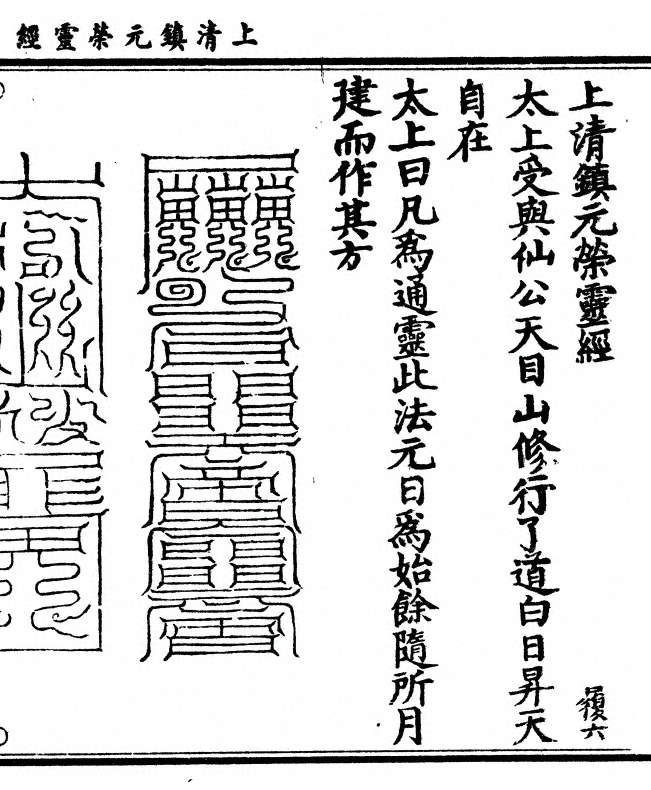 上清鎮元榮靈經
上清鎮元榮靈經
太上受與仙公天目山修行了道白日昇天
自在
太上曰凡為通靈此法元日為始餘隨所月
建而作其方